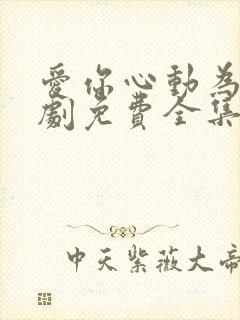 爱你心動為
劇免費全集
中天紫薇大帝